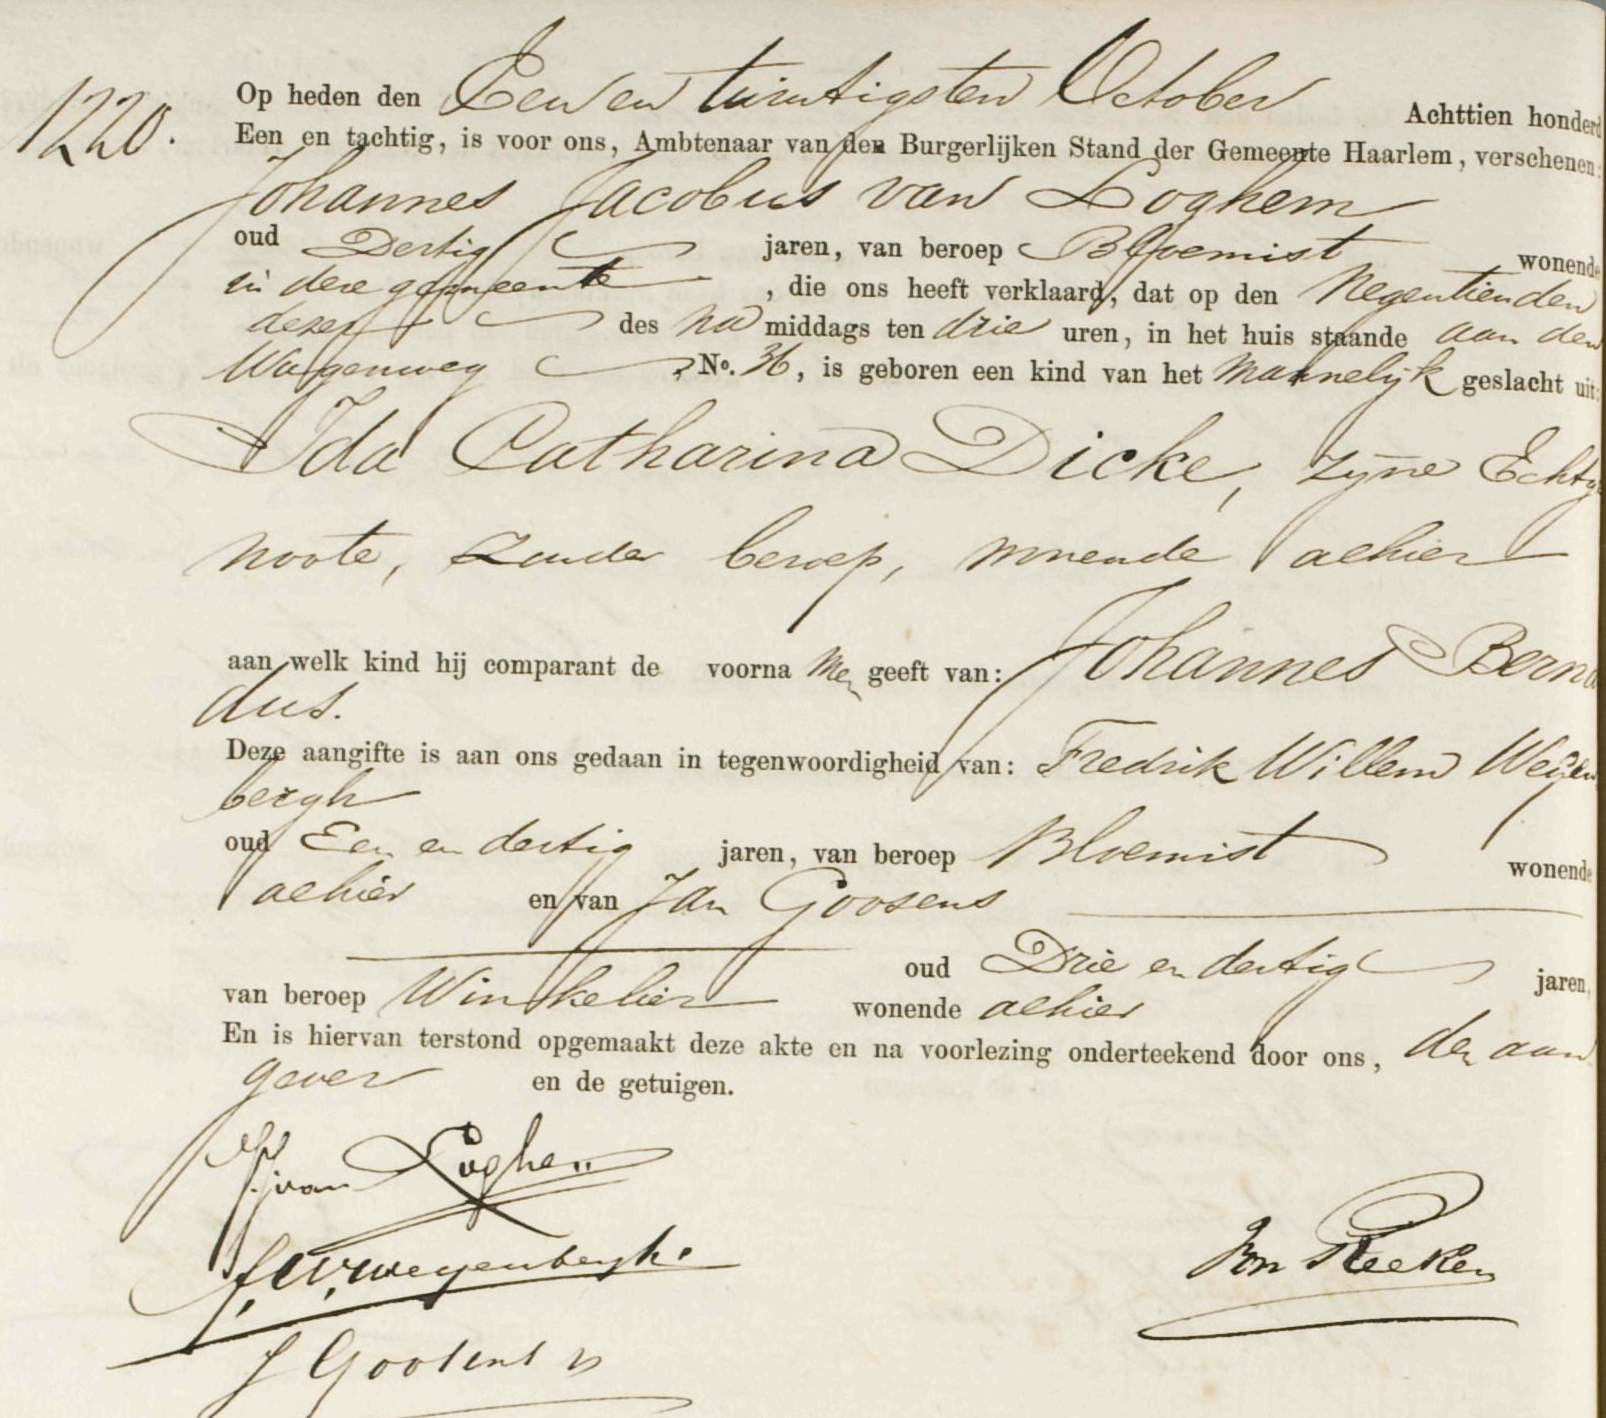 1220.
Op heden den Een en twintigsten October Achttien honderd
Een en tachtig, is voor ons, Ambtenaar van den Burgerlijken Stand der Gemeente Haarlem, verschenen:
Johannes Jacobus van Loghem
oud Dertig jaren, van beroep Bloemist wonende
in deze gemeente, die ons heeft verklaard, dat op den Negentienden
dezer des na middags ten drie uren, in het huis staande aan den
Wagenweg, No. 36, is geboren een kind van het Mannelijk geslacht uit:
Ida Catharina Dicke, zijne Echtge
noote, zonder beroep, wonende alhier
aan welk kind hij comparant de voorna men geeft van: Johannes Berna
dus.
Deze aangifte is aan ons gedaan in tegenwoordigheid van: Fredrik Willem Weijen
bergh
oud Een en dertig jaren, van beroep Bloemist wonende
alhier en van Jan Goosens
oud Drie en dertig jaren,
van beroep Winkelier wonende alhier
En is hiervan terstond opgemaakt deze akte en na voorlezing onderteekend door ons, den aan
gever en de getuigen.
JJ van Loghem
F. W. Weyenbergh.
J Goosens